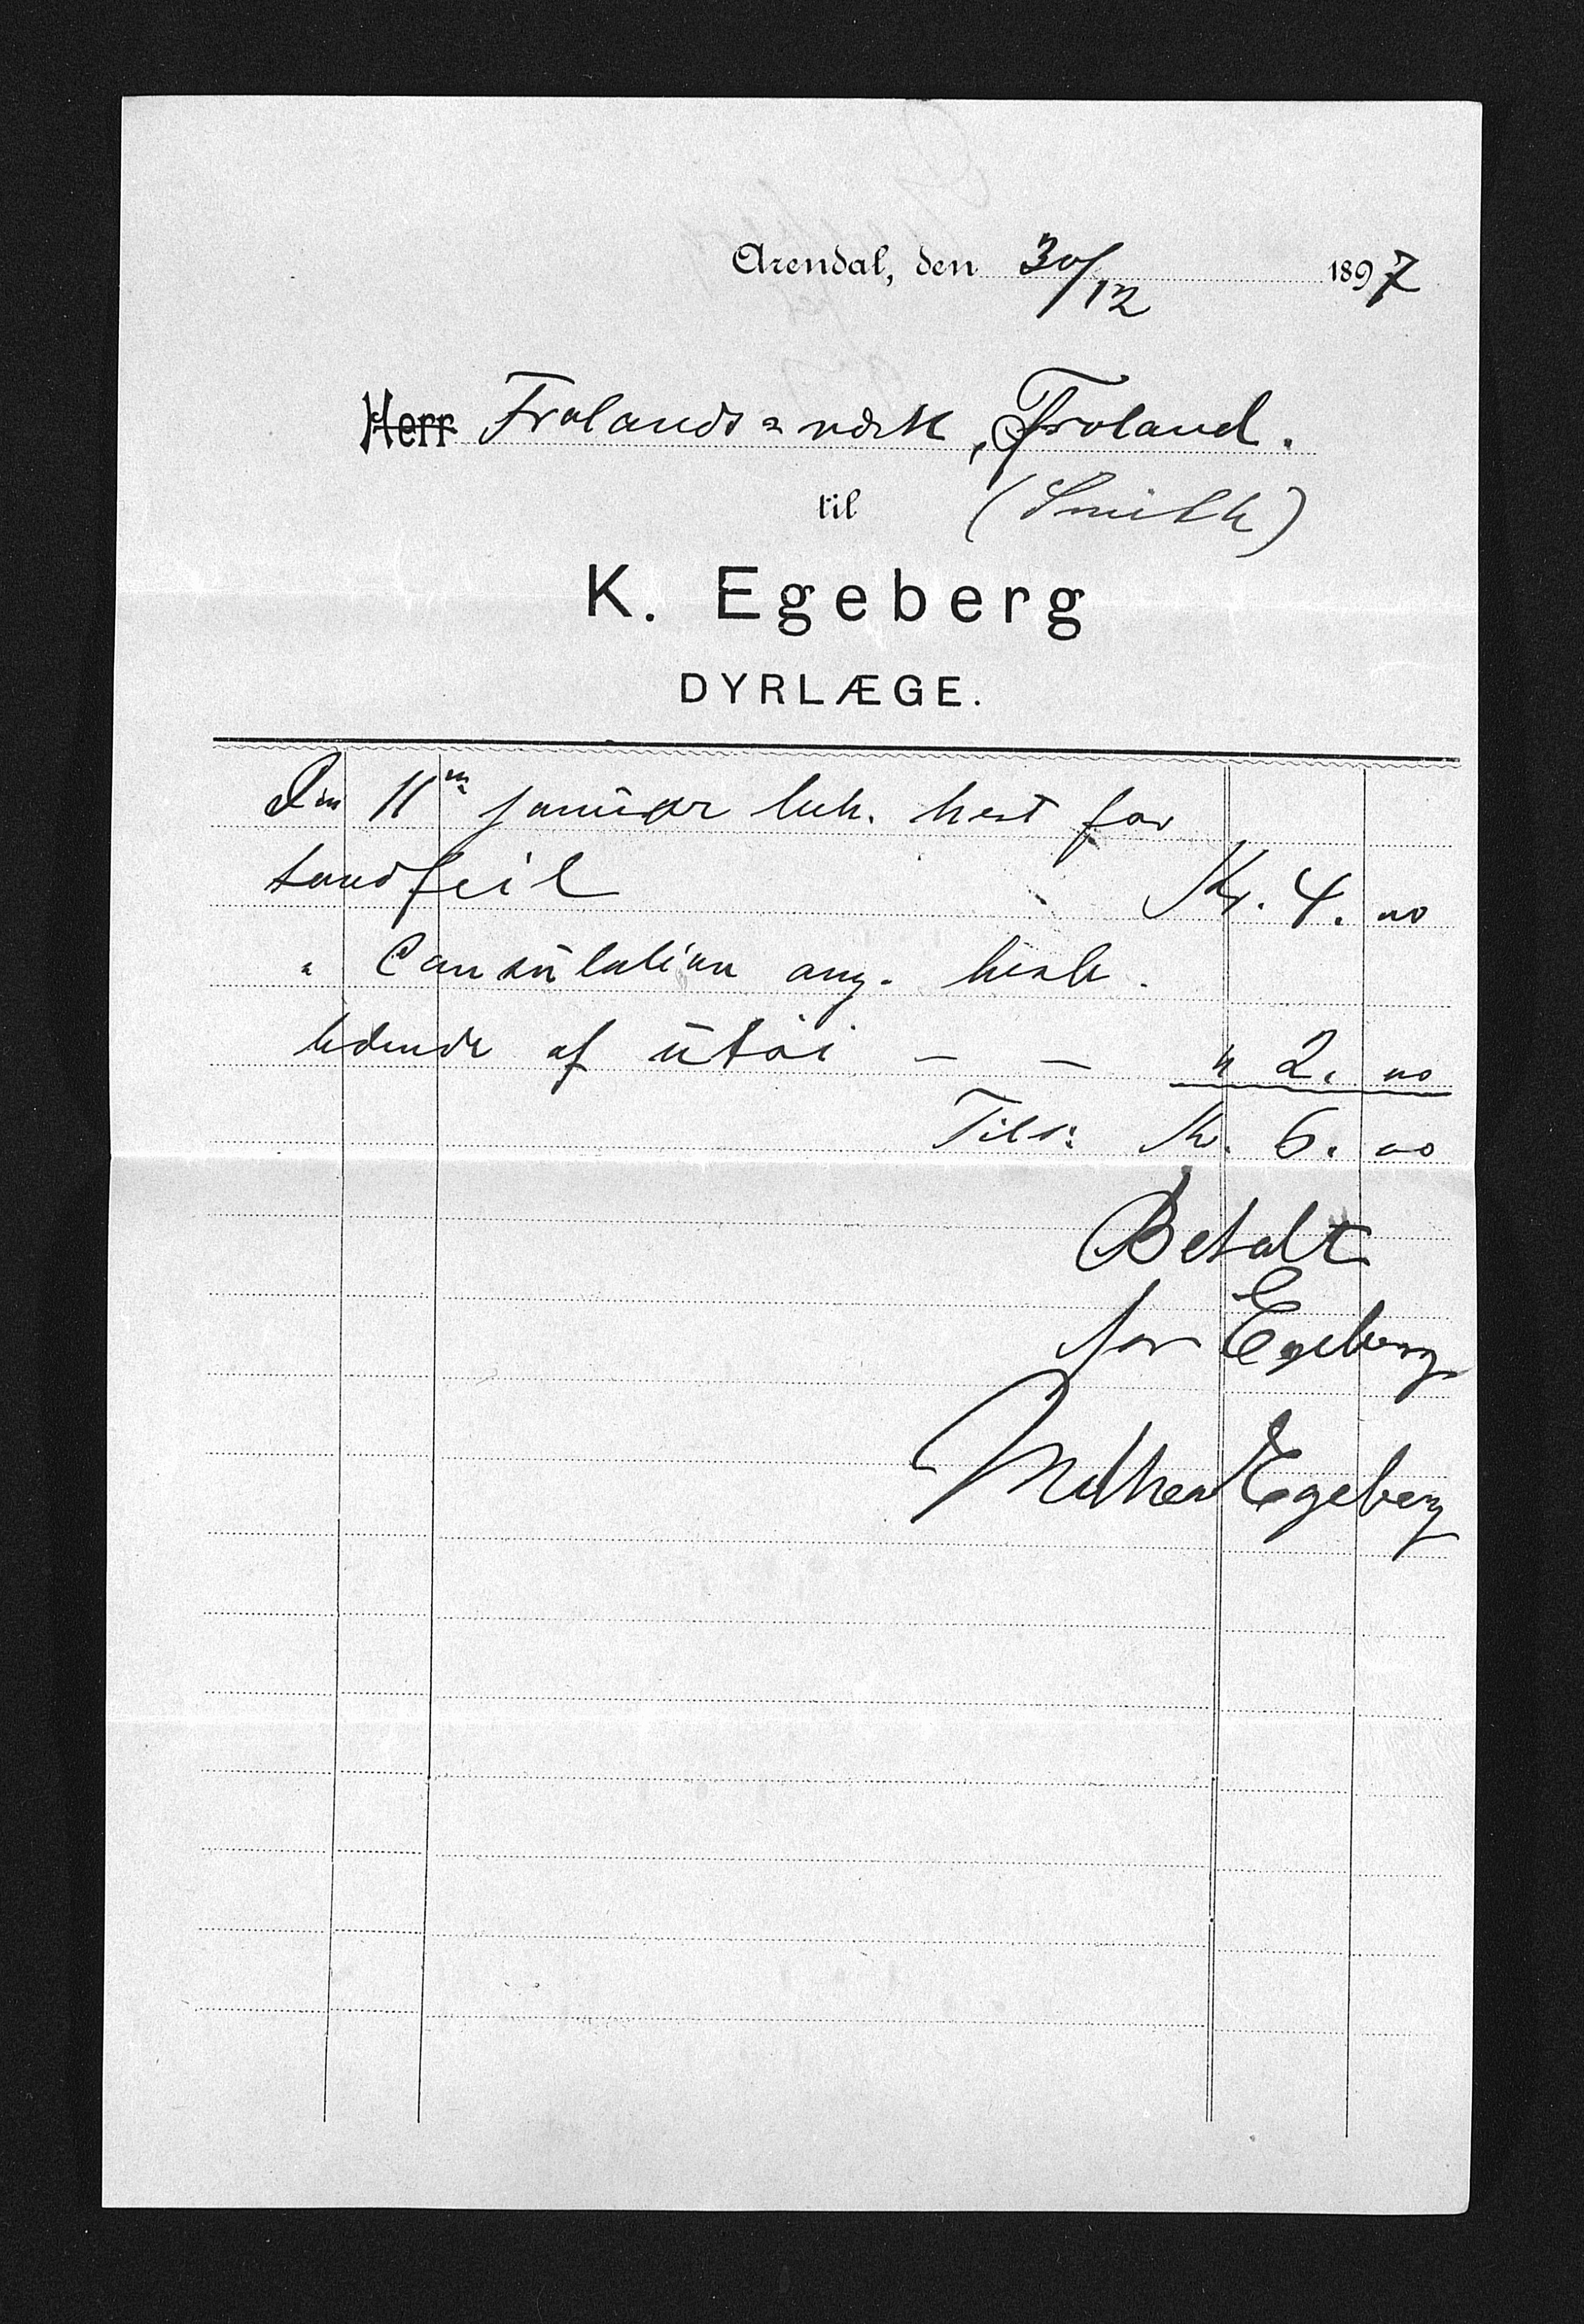 Arendal, den 30/12 1897
Herr Frolands værk, Froland.
til (Smith)
K. Egeberg
DYRLÆGE.
Den 11te januar beh. hest for
tandfeil Kr. 4. 00
" Consultation ang. heste
lidende af utøi - - " 2. 00
Tils: Kr. 6. 00
Betalt
for Egeberg
Egeberg